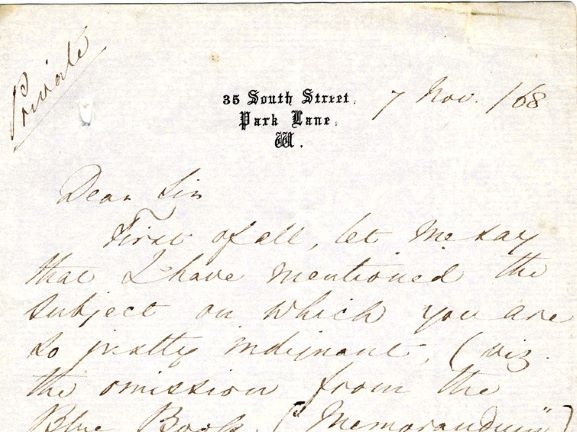 Private
35 South Street,
Park Lane,
W.
7 Nov. /68
Dear Sir
First of all, let me say
that I have mentioned the
subject on which you are
so justly indignant, (viz.
the omission from the
Blue Book. ("Memorandum")